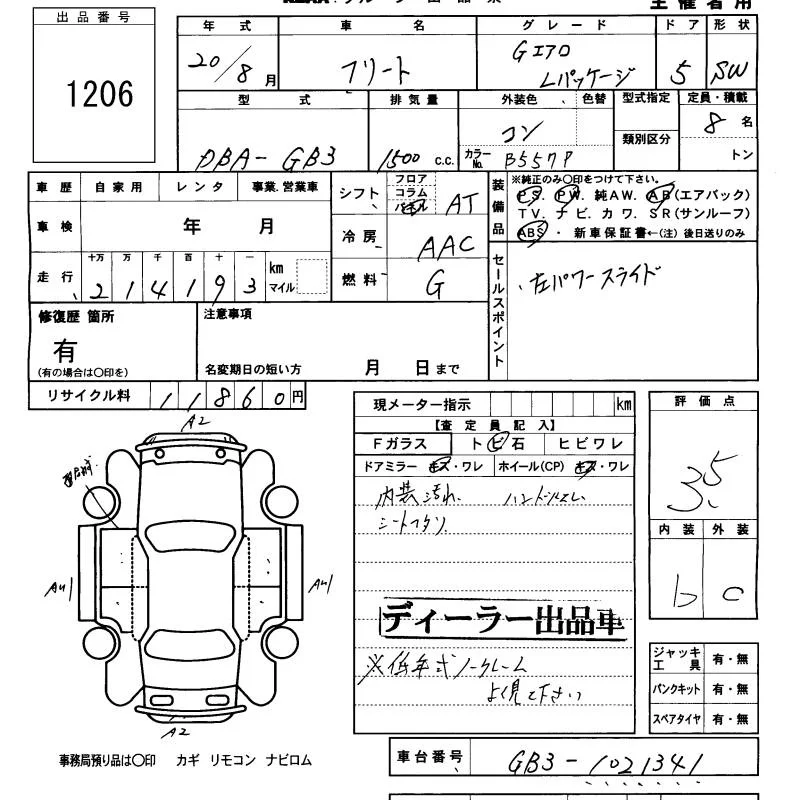 主催者用
出品番号
1206
年式 車名 グレード ドア 形状
20/8月 フリート Gエアロ Lパッケージ 5 SW
型式 排気量 外装色 色替 型式指定 定員・積載
DBA-GB3 1500 c.c. コン 類別区分 8名
カラーNo. B557P トン
車歴 自家用 レンタ 事業.営業車
車検 年 月
走行 十万 万 千 百 十 一 km マイル
2 1 4 1 9 3
シフト フロア コラム パネル AT
冷房 AAC
燃料 G
装備品
※純正のみ〇印をつけて下さい。
PS. PW. 純AW. AB(エアバック)
TV. ナビ. カワ. SR(サンルーフ)
ABS・ 新車保証書←(注) 後日送りのみ
セールスポイント
左パワースライド
修復歴 箇所
有
(有の場合は〇印を)
注意事項
名変期日の短い方 月 日まで
リサイクル料 11860円
現メーター指示 km
【査定員記入】
Fガラス トビ石 ヒビワレ
ドアミラー キズ・ワレ ホイール(CP) キズ・ワレ
内装汚れ. ハンドルスレ
シートフタソ
ディーラー出品車
※低年式ノークレーム
よく見て下さい
評価点
3.5
内装 外装
b c
ジャッキ工具 有・無
パンクキット 有・無
スペアタイヤ 有・無
A2
AU1
AU1
A2
事務局預り品は〇印 カギ リモコン ナビロム
車台番号 GB3-1021341